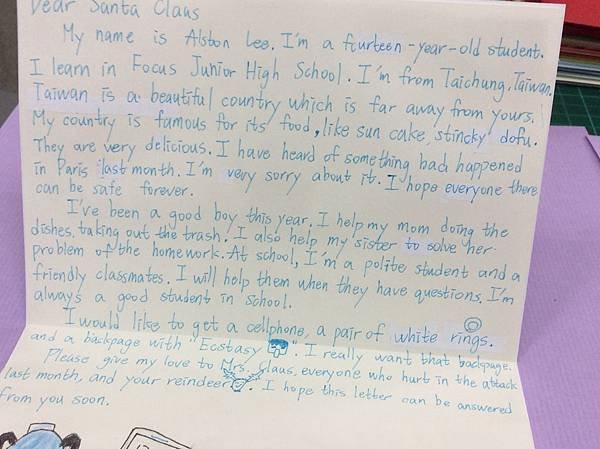 Dear Santa Claus
My name is Alston Lee. I'm a fourteen-year-old student.
I learn in Focus Junior High School. I'm from Taichung, Taiwan.
Taiwan is a beautiful country which is far away from yours.
My country is famous for its food, like sun cake, stincky dofu.
They are very delicious. I have heard of something bad happened
in Paris last month. I'm very sorry about it. I hope everyone there
can be safe forever.
I've been a good boy this year. I help my mom doing the
dishes, taking out the trash. I also help my sister to solve her
problem of the homework. At school, I'm a polite student and a
friendly classmates. I will help them when they have questions. I'm
always a good student in school.
I would like to get a cellphone, a pair of white rings.
and a backpage with "Ecstasy". I really want that backpage.
Please give my love to Mrs. Claus, everyone who hurt in the attack
last month, and your reindeer. I hope this letter can be answered
from you soon.